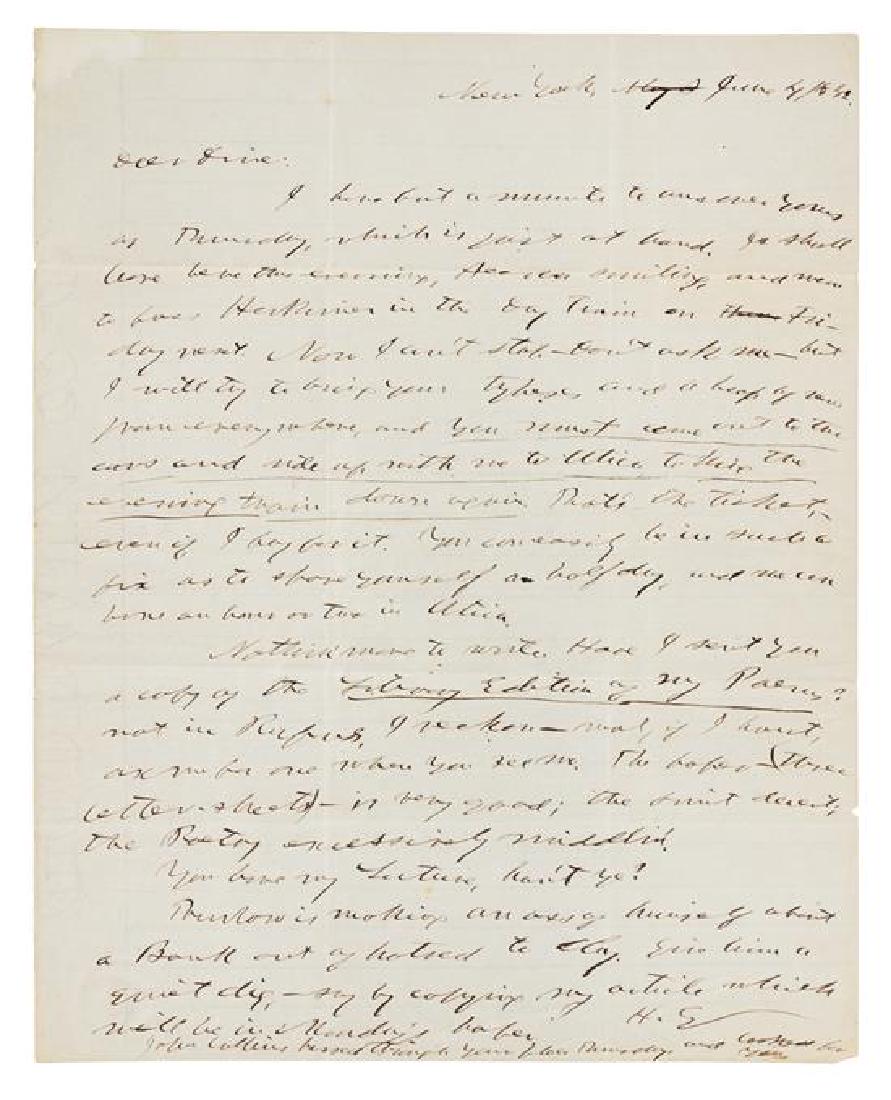 New York, May June 4, 1842.
Dear Friend:
I have but a minute to answer yours
of Thursday, which is just at hand. I shall
leave here this evening, and mean
to pass Herkimer in the day train on Thurs Fri-
day next. Now I can't stop—don't ask me—but
I will try to bring your and a heap of news
from everywhere, and you must come out to the
cars and ride up with me to Utica, taking the
evening train down again. That's the ticket,
even if I pay for it. You can easily be in such a
fix as to spare yourself a half day, and we can
have an hour or two in Utica.
Nothing more to write. Have I sent you
a copy of the Library Edition of my Poems?
not in I reckon—well, if I haven't,
ax me for one when you see me. The paper—(three
letter-sheets)—is very good; the print decent;
the Poetry excessively middlin.
You have my Lecture, han't ye?
Thurlow is making an ass of himself about
a Bank out of hatred to Clay. Give him a
quiet dig,—say by copying my article which
will be in Monday's paper. H. G.
John Collins passed through your place Thursday and looked for
you